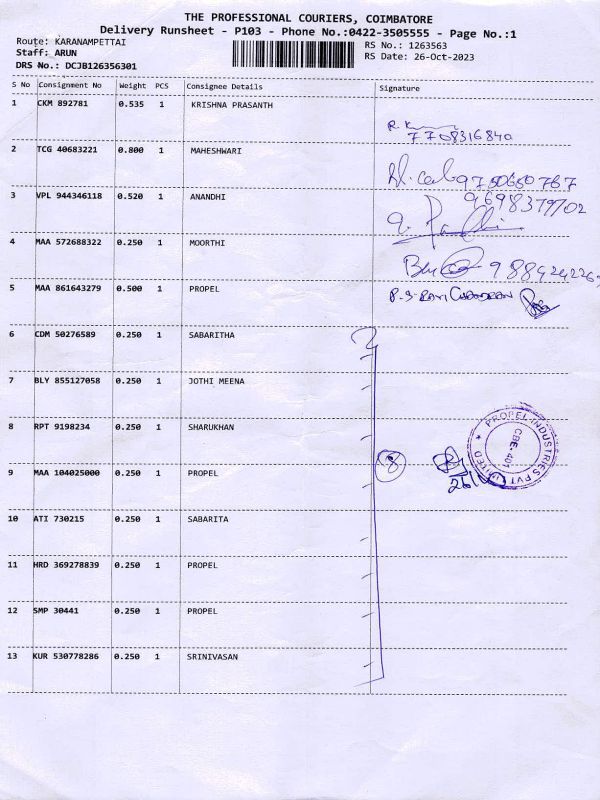 THE PROFESSIONAL COURIERS, COIMBATORE
Delivery Runsheet - P103 - Phone No.:0422-3505555 - Page No.:1
Route: KARANAMPETTAI
Staff: ARUN
DRS No.: DCJB126356301
RS No.: 1263563
RS Date: 26-Oct-2023
S No Consignment No Weight PCS Consignee Details Signature
1 CKM 892781 0.535 1 KRISHNA PRASANTH
7708316840
2 TCG 40683221 0.800 1 MAHESHWARI
9750650767
3 VPL 944346118 0.520 1 ANANDHI
9698379702
4 MAA 572688322 0.250 1 MOORTHI
5 MAA 861643279 0.500 1 PROPEL
P.S. RAVI CHANDRAN
6 CDM 50276589 0.250 1 SABARITHA
7 BLY 855127058 0.250 1 JOTHI MEENA
8 RPT 9198234 0.250 1 SHARUKHAN
9 MAA 104025000 0.250 1 PROPEL
8
PROPEL INDUSTRIES PVT LIMITED
CBE-401
10 ATI 730215 0.250 1 SABARITA
11 HRD 369278839 0.250 1 PROPEL
12 SMP 30441 0.250 1 PROPEL
13 KUR 530778286 0.250 1 SRINIVASAN